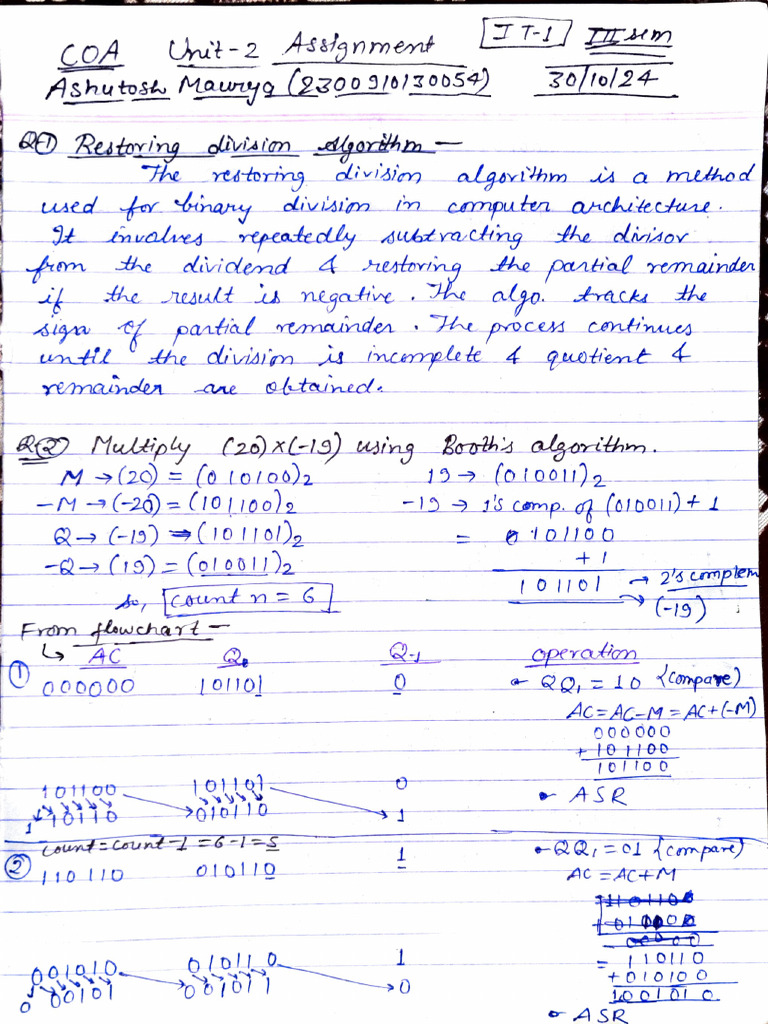 COA Unit-2 Assignment IT-1 III sem
Ashutosh Maurya (2300910130054) 30/10/24
Q① Restoring division algorithm —
The restoring division algorithm is a method
used for binary division in computer architecture.
It involves repeatedly subtracting the divisor
from the dividend & restoring the partial remainder
if the result is negative. The algo. tracks the
sign of partial remainder. The process continues
until the division is incomplete & quotient &
remainder are obtained.
Q② Multiply (20)×(-19) using Booth's algorithm.
M → (20) = (010100)2 19 → (010011)2
-M → (-20) = (101100)2 -19 → 1's comp. of (010011) + 1
Q → (-19) → (101101)2 = 101100
-Q → (19) = (010011)2 + 1
so, count n = 6 101101 → 2's complem
→ (-19)
From flowchart —
↳ AC Q Q-1 operation
① 000000 101101 0 • QQ1 = 10 {compare)
AC = AC-M = AC+(-M)
000000
+ 101100
101100
101100 101101 0
110110 010110 1 • ASR
count = count-1 = 6-1 = 5
② 110110 010110 1 • QQ1 = 01 {compare)
AC = AC+M
= 110110
+ 010100
1001010
001010 010110 1
000101 001011 0
• ASR